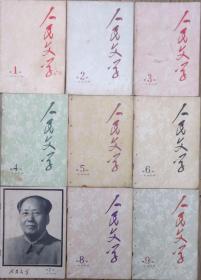 人民文学
1
人民文学
2
人民文学
3
人民文学
4
人民文学
5
人民文学
6
人民文学
人民文学
8
人民文学
9